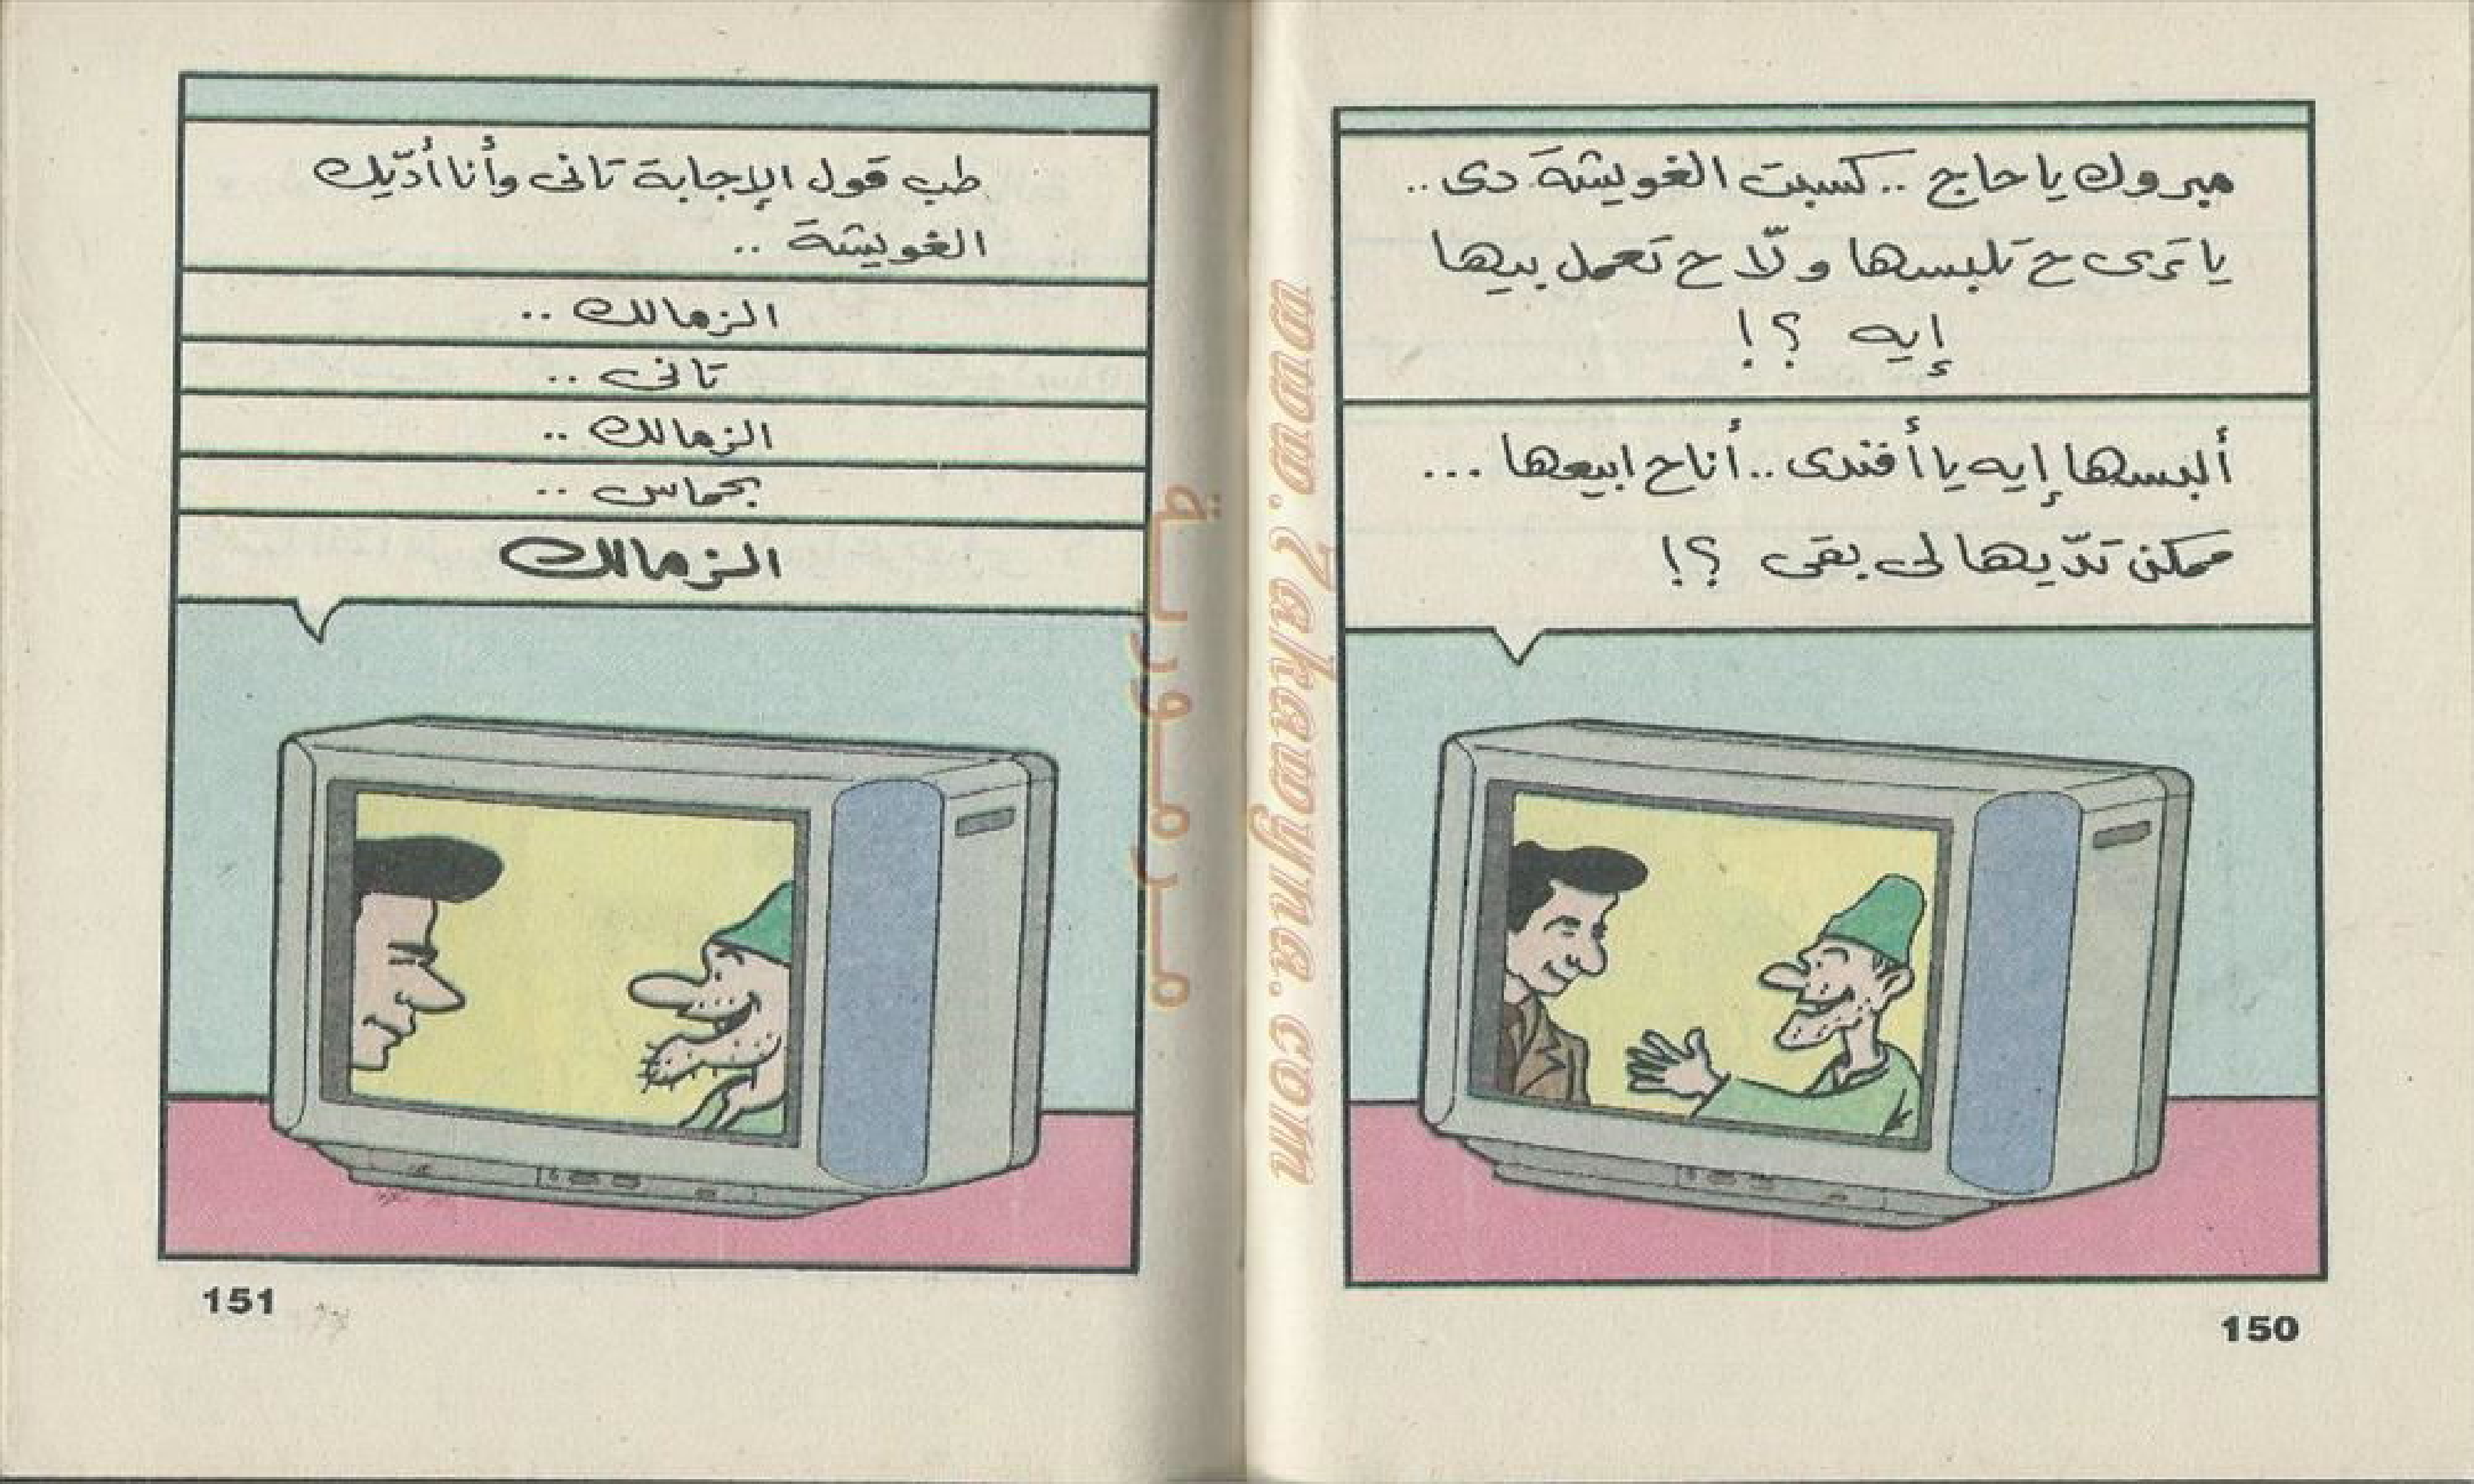 مبروك يا حاج .. كسبت الغويشة دى ..
يا ترى ح تلبسها ولّا ح تعمل بيها
إيه ؟!
ألبسها إيه يا أفندى .. أنا ح ابيعها ...
ممكن تدّيها لى بقى ؟!
150
طب قول الإجابة تانى وأنا أدّيك
الغويشة ..
الزمالك ..
تانى ..
الزمالك ..
بحماس ..
الزمالك
151
www.7akawyna.com